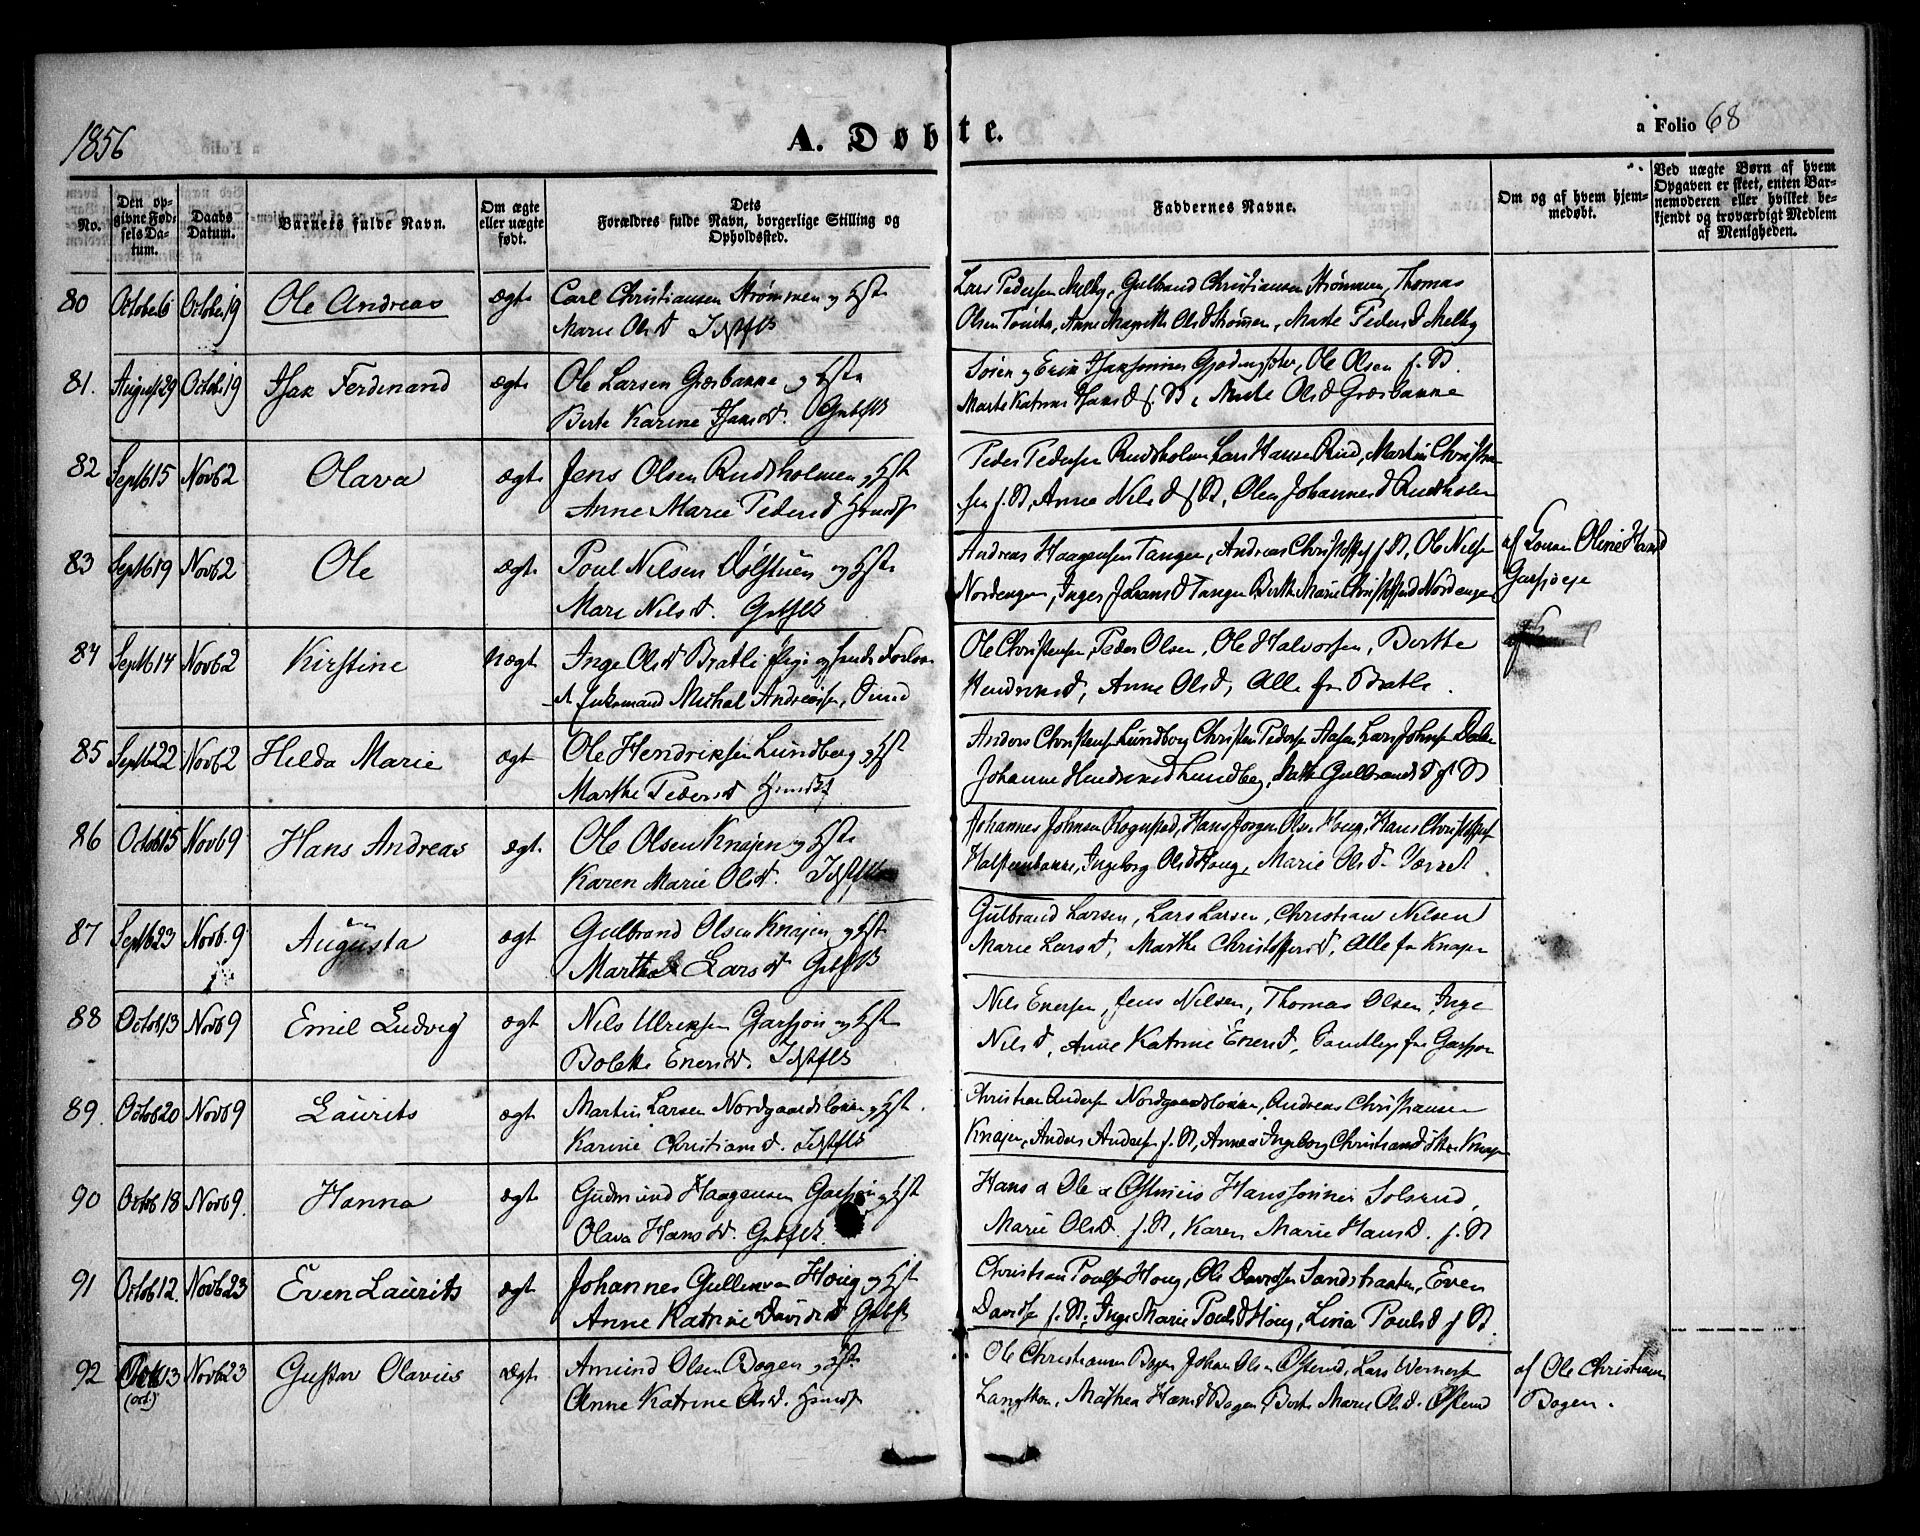 1856
A. Døbte.
a Folio 68
No.
Den op-
givne Fød-
sels Da-
tum.
Daabs
Datum.
Barnets fulde Navn.
Om ægte
eller uægte
født.
Dets
Forældres fulde Navn, borgerlige Stilling og
Opholdssted.
Faddernes Navne.
Om og af hvem hjem-
medøbt.
Ved uægte Børn af hvem
Opgaven er skeet, enten Bar-
nemoderen eller hvilket be-
kjendt og troværdigt Medlem
af Menigheden.
80 Octobe 6 Octobe. 19 Ole Andreas ægte
Carl Christiansen Strømmen og Hst
Marie Olsd
Lars Pedersen Melby, Gulbrand Christiansen Strømmen, Thomas
Olsen, Anne Magrethe Olsd Strømen, Marte Pedersd Melby
81. August 29 Octobe. 19 Isak Ferdinand ægte
Ole Larsen Græsbanne og Hst
Berte Karine Isaksd.
Søren og Erik, Ole Olsen f. St.
Marte Katrine Hansd f. St, Olsd Græsbanne
82 Septb 15 Novb 2 Olava ægte
Jens Olsen Rudsholmen og Hst
Anne Marie Pedersd
Peder Pedersen Rudsholm Lars Hansen Rud, Martin Christian
sen f. St, Anne Nilsd f St, Johannesd Rudsholm
83 Septb 19 Novb 2 Ole ægte
Poul Nilsen Dølstuen og Hst
Mari Nilsd.
Andreas Haagensen Tangen, Andreas f. St, Ole Nilsen
Nordengen, Inger Johansd Tangen Berthe Marie Nordengen
af Oline Hansd
Garsjøeje
84 Septb 14 Novb 2 Kirstine uægt
Inge Olsd Bratli
Enkemand Michal, Smed
Ole Christensen, Peder Olsen, Ole Halvorsen, Berthe
Hendriksd, Anne Olsd, Alle fra Bratli.
85 Septb 22 Novb 2 Hilda Marie ægt
Ole Hendriksen Lundberg og Hst
Marthe Pedersd
Anders Christensen Lundberg Christen Pedersen Aasen Lars Johnsen Dalen
Johanne Hendriksd Lundberg, Gulbrandsd f St
86 Octob 15 Novb 9 Hans Andreas ægt.
Ole Olsen Knajen og Hst
Karen Marie Olsd.
Johannes Johnsen Rognstad, Hans Jørgen Olsen Houg, Hans
Ingeborg Olsd Houg, Marie Olsd.
87 Septb 23 Novb. 9 Augusta ægt
Gulbrand Olsen Knajen og Hst
Marthe Larsd
Gulbrand Larsen, Lars Larsen, Christian Nilsen
Marie Larsd, Marthe Christoffersd, Alle fra Knajen
88 Octob 13 Novb 9 Emil Ludvig ægt
Nils Ulriksen Garsjøn og Hst
Bolette Enersd.
Nils Enersen, Jens Nilsen, Thomas Olsen, Inge
Nilsd, Anne Katrine Enersd, Samtlige fra Garsjøn
89. Octob 20 Novb 9 Laurits ægt
Martin Larsen Nordgaardsløkken og Hst.
Karine Christiansd.
Christian Andersen Nordgaardsløkken, Andreas Christiansen
Knajen, Anders Andersen f. St, Anne & Ingeborg Christiansd Knajen
90 Octob 18 Novb 9. Hanna ægt
Gudmund Haagensen Garsjøn og Hst
Olava Hansd.
Hans & Ole & Hanssønner Solsrud,
Marie Olsd. f. St, Karen Marie Hansd. f. St
91 Octob 12. Novb 23 Even Laurits ægt
Johannes Gulliksen Houg og Hst
Anne Katrine Davidsd
Christian Poulsen Houg, Ole Davidsen Sandstraaten, Even
Davidsen f. St, Inge Marie Poulsd Houg, Lina Poulsd f St.
92 Octb 13 Novb 23 Gustav Olavius ægt
(Octb)
Amund Olsen Bogen og Hst
Anne Katrine Olsd.
Ole Christiansen Bogen Johan Olsen Østerud, Lars Wernersen
Mathea Hansd Bogen, Berte Marie Olsd. Østerud
af Ole Christiansen
Bogen.